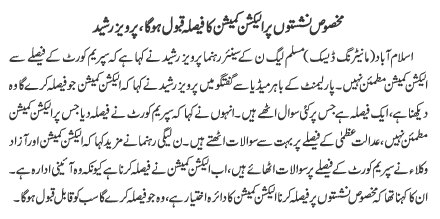 مخصوص نشستوں پر الیکشن کمیشن کا فیصلہ قبول ہوگا، پرویز رشید
اسلام آباد (مانیٹرنگ ڈیسک) مسلم لیگ ن کے سینئر رہنما پرویز رشید نے کہا ہے کہ سپریم کورٹ کے فیصلے سے
الیکشن کمیشن مطمئن نہیں۔ پارلیمنٹ کے باہر میڈیا سے گفتگو میں پرویز رشید نے کہا کہ الیکشن کمیشن جو فیصلہ کرے گا وہ
دیکھنا ہے، ایک فیصلہ ہے جس پر کئی سوال اٹھے ہیں۔ انہوں نے کہا کہ سپریم کورٹ نے فیصلہ دیا جس پر الیکشن کمیشن
مطمئن نہیں، عدالت عظمیٰ کے فیصلے پر بہت سے سوالات اٹھتے ہیں۔ ن لیگی رہنما نے مزید کہا کہ الیکشن کمیشن اور آزاد
وکلاء نے سپریم کورٹ کے فیصلے پر سوالات اٹھائے ہیں، اب الیکشن کمیشن نے فیصلہ کرنا ہے کیونکہ وہ آئینی ادارہ ہے۔
ان کا کہنا تھا کہ مخصوص نشستوں پر فیصلہ کرنا الیکشن کمیشن کا دائرہ اختیار ہے، وہ جو فیصلہ کرے گا سب کو قابل قبول ہوگا۔